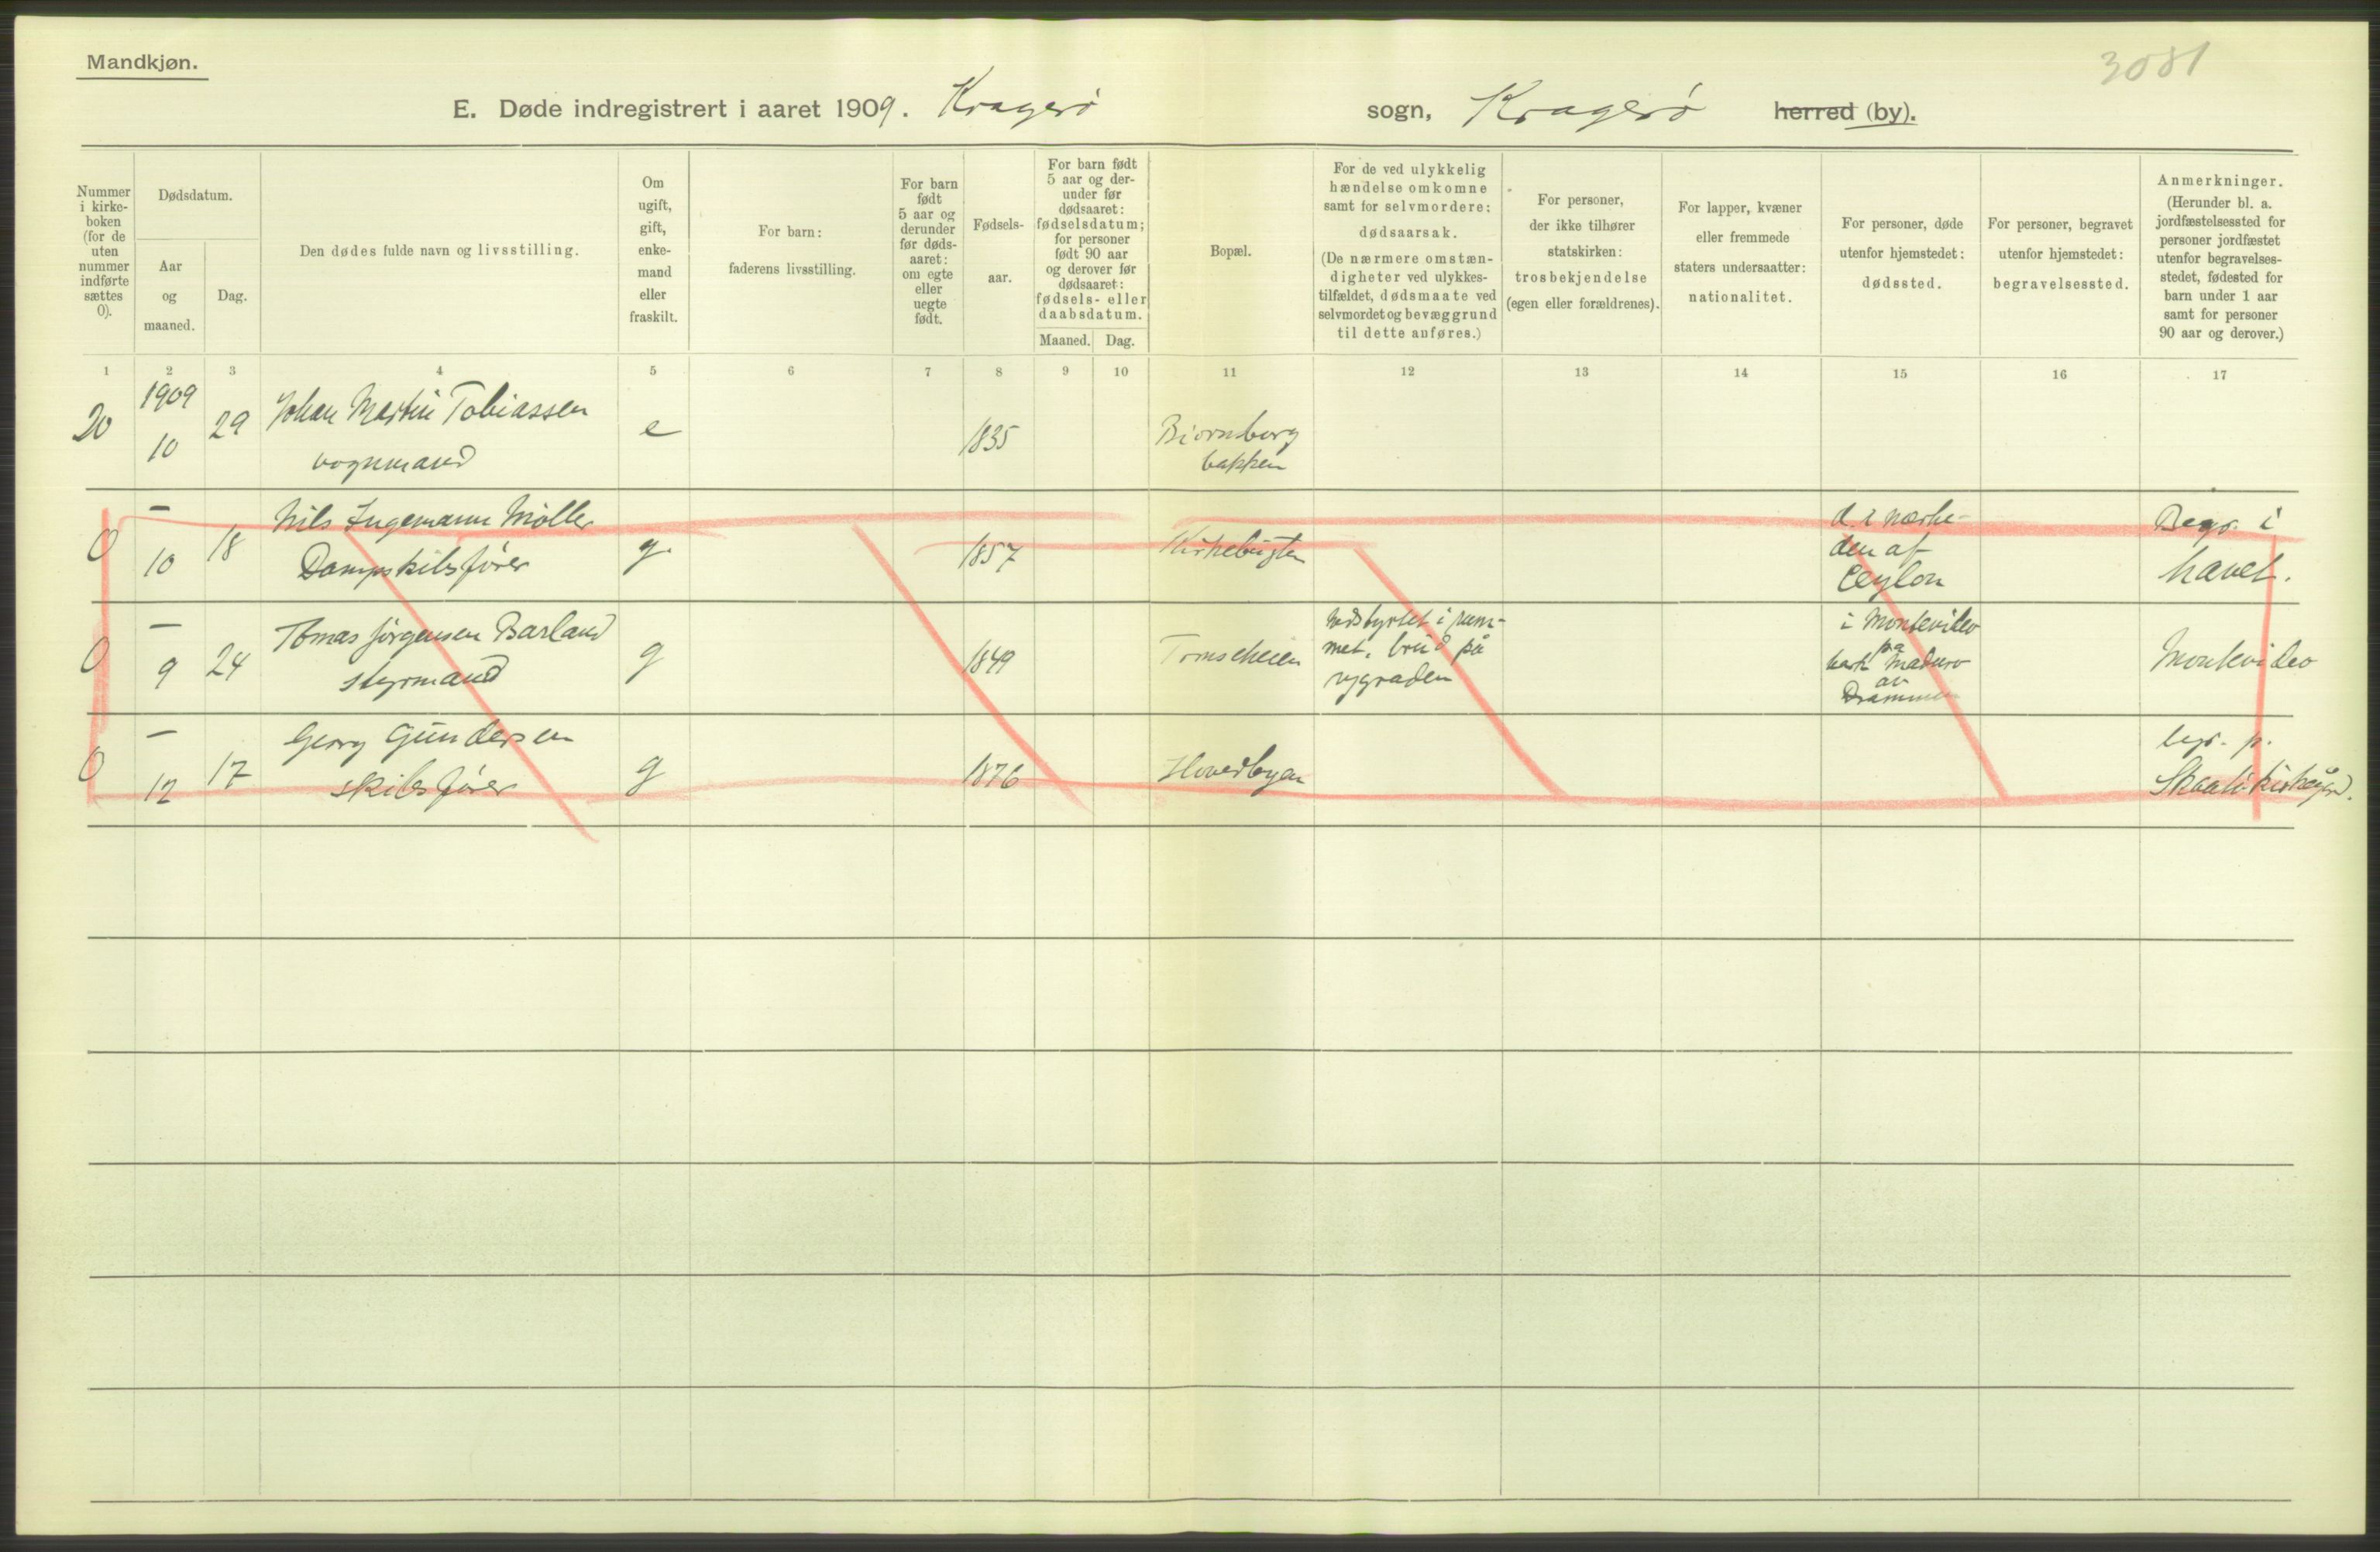 Mandkjøn.
3081
E. Døde indregistrert i aaret 1909. Kragerø sogn, Kragerø herred (by).
Nummer i kirke-boken (for de uten nummer indførte sættes 0).
Dødsdatum.
Aar og maaned.
Dag.
Den dødes fulde navn og livsstilling.
Om ugift, gift, enke-mand eller fraskilt.
For barn: faderens livsstilling.
For barn født 5 aar og derunder før døds-aaret: om egte eller uegte født.
Fødsels-aar.
For barn født 5 aar og der-under før dødsaaret: fødselsdatum; for personer født 90 aar og derover før dødsaaret: fødsels- eller daabsdatum.
Maaned. Dag.
Bopæl.
For de ved ulykkelig hændelse omkomne samt for selvmordere: dødsaarsak. (De nærmere omstæn-digheter ved ulykkes-tilfældet, dødsmaate ved selvmordet og bevæggrund til dette anføres.)
For personer, der ikke tilhører statskirken: trosbekjendelse (egen eller forældrenes).
For lapper, kvæner eller fremmede staters undersaatter: nationalitet.
For personer, døde utenfor hjemstedet: dødssted.
For personer, begravet utenfor hjemstedet: begravelsessted.
Anmerkninger. (Herunder bl. a. jordfæstelsessted for personer jordfæstet utenfor begravelses-stedet, fødested for barn under 1 aar samt for personer 90 aar og derover.)
1 2 3 4 5 6 7 8 9 10 11 12 13 14 15 16 17
20 1909 10 29 Johan Martin Tobiassen vognmand e 1835 Biornsborg bakken
0 – 10 18 Nils Ingemann Møller Dampskibsfører g. 1857 Kirkebugten d. i nærhe-den af Ceylon Begr. i havet.
0 – 9 24 Tomas Jørgensen Barland styrmand g 1849 Tomseheien Nedstyrtet i rum-met, brud på rygraden i Montevideo på bark Maduro av Drammen Montevideo
0 – 12 17 Georg Gundersen skibsfører g 1876 Hovedbyen begr. p. Skaatø kirkegrd.